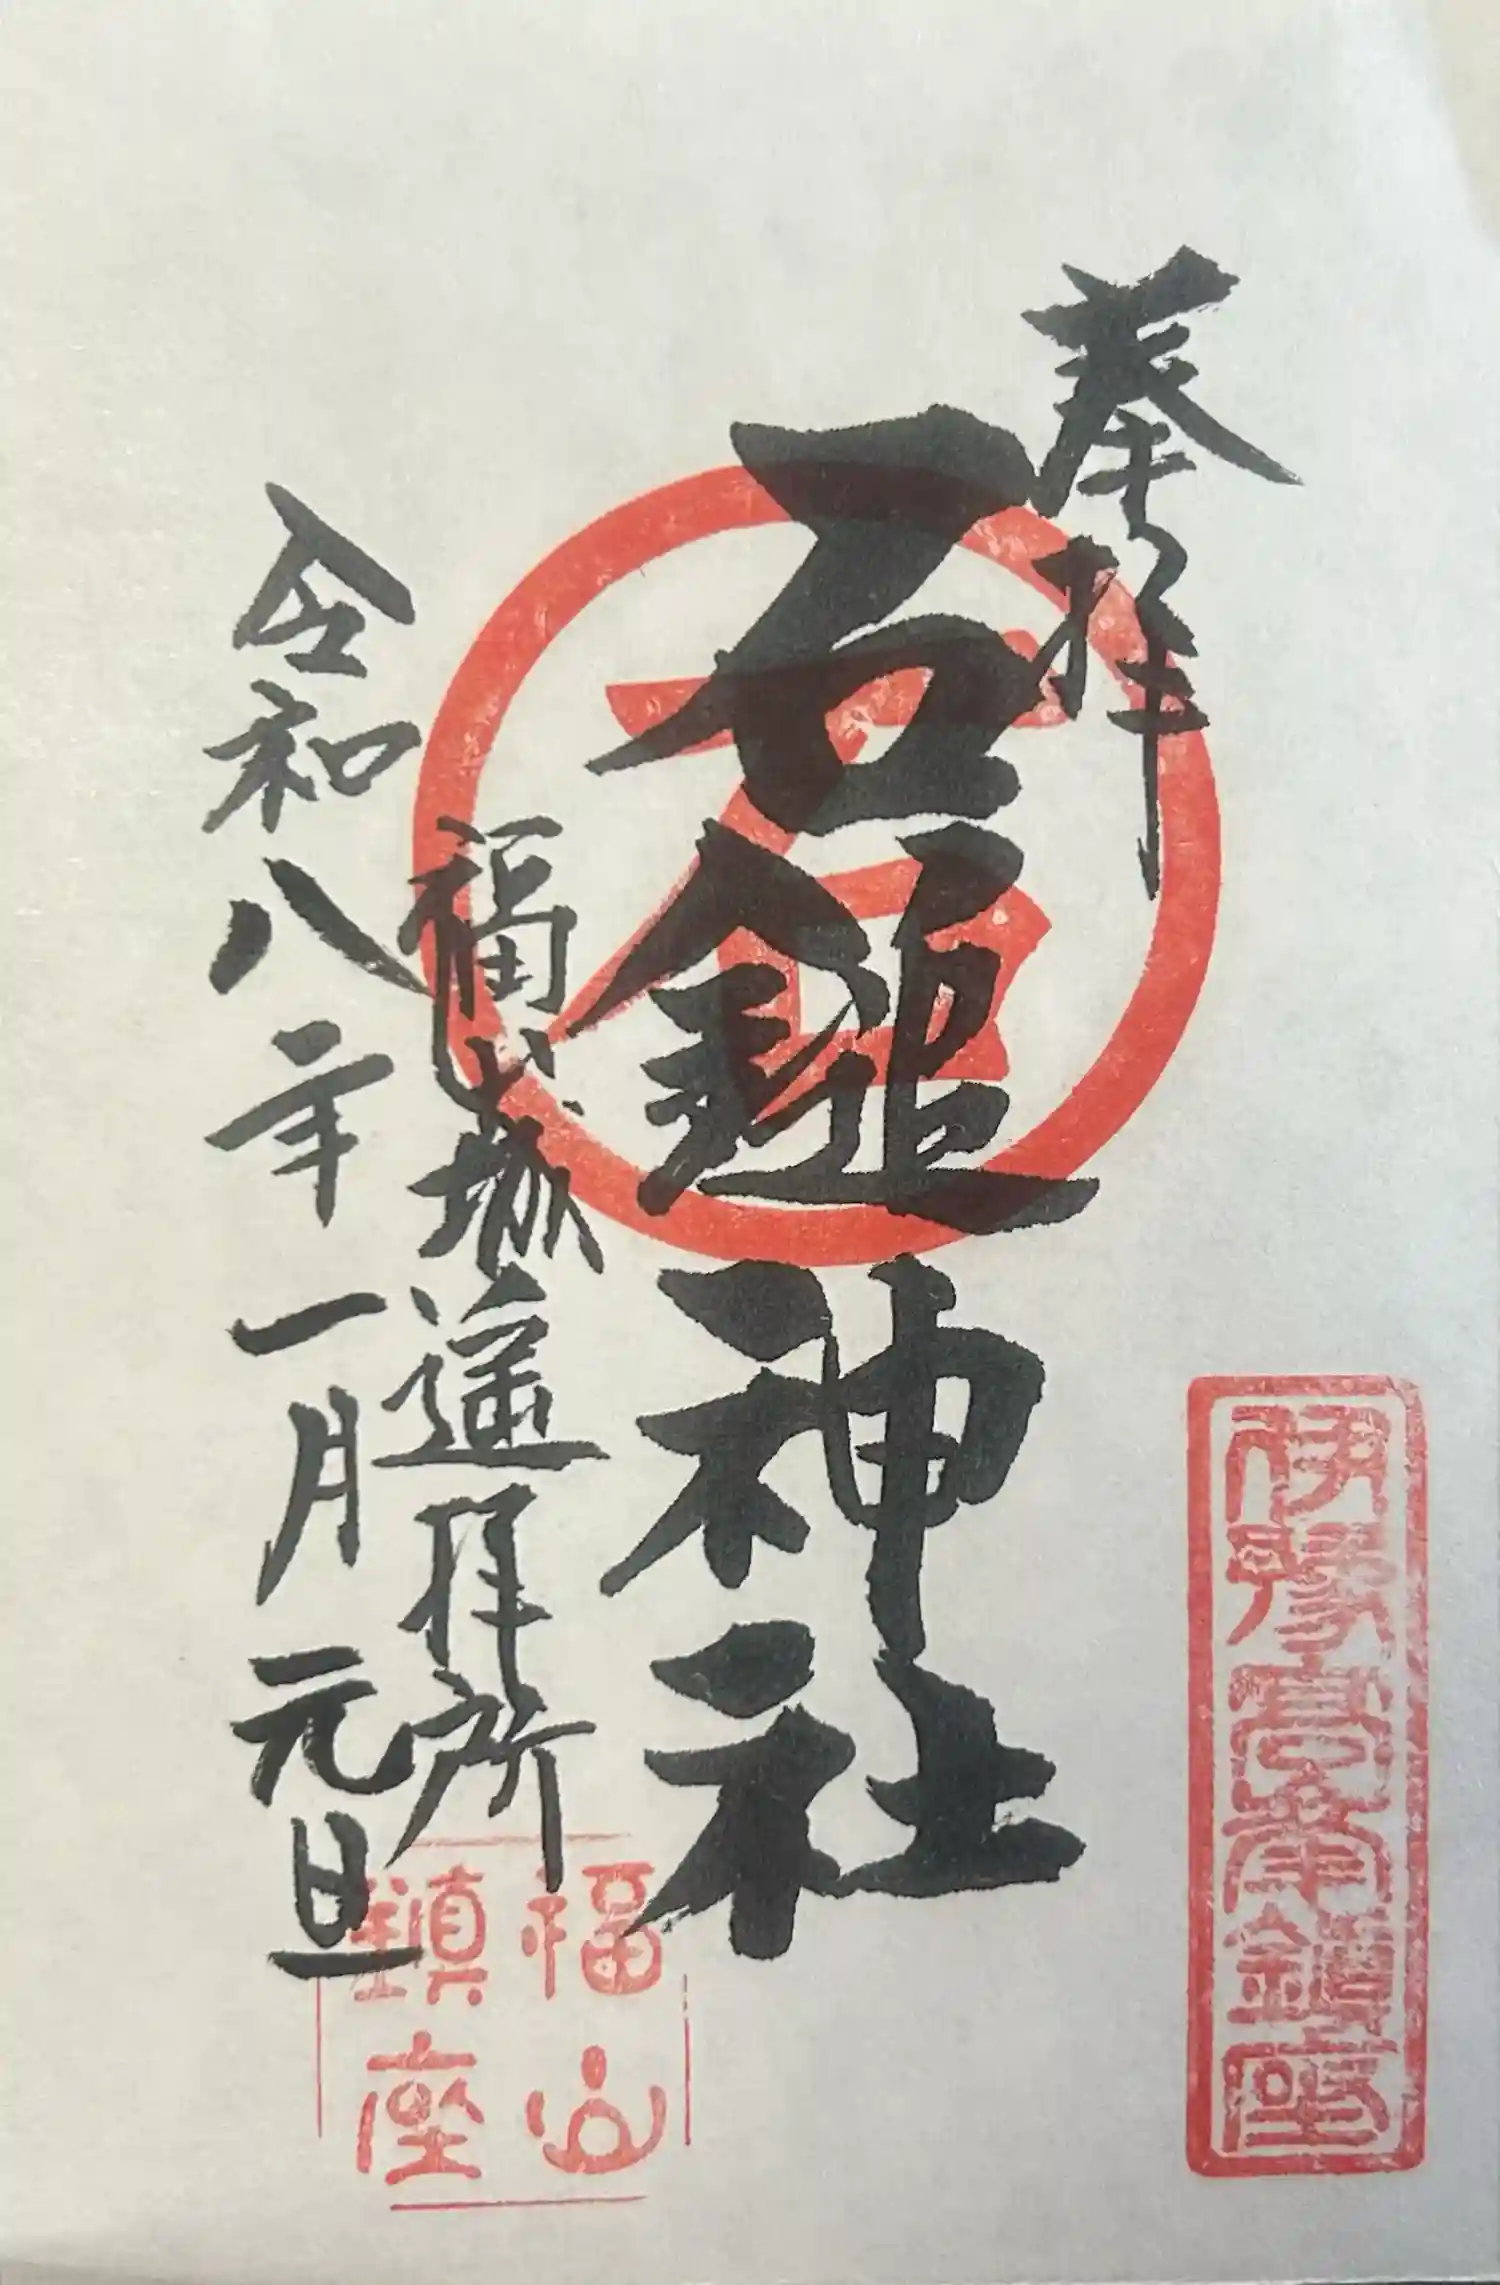 奉拝
石鎚神社
福城遥拝所
令和八年一月元旦
石
伊豫高峯鎮座
福山鎮座